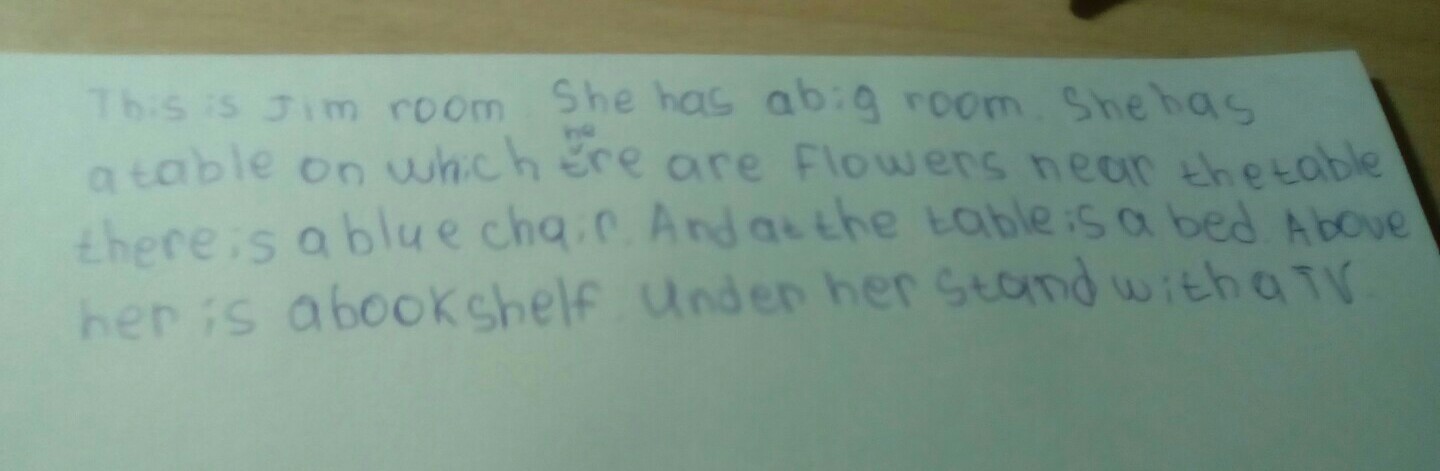 This is Jim room. She has a big room. She has
a table on which there are flowers near the table
there is a blue chair. And at the table is a bed. Above
her is a bookshelf. Under her stand with a TV.